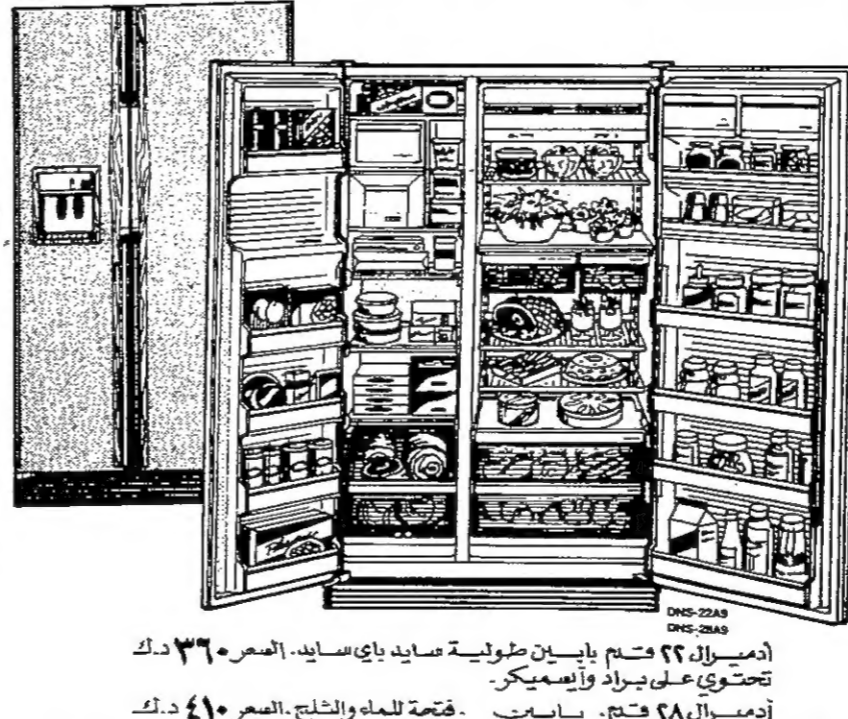 DNS-22A9
DNS-28A9
أدميرال ٢٢ قدم بابين طولية سايد باي سايد. السعر ٣٦٠ د.ك
تحتوي على براد وآيسميكر.
أدميرال ٢٨ قدم. بابين . فتحة للماء والثلج. السعر ٤١٠ د.ك